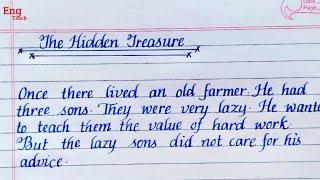 Eng
Teach
Date
Page
The Hidden Treasure
Once there lived an old farmer. He had
three sons. They were very lazy. He wante
to teach them the value of hard work.
But the lazy sons did not care for his
advice.